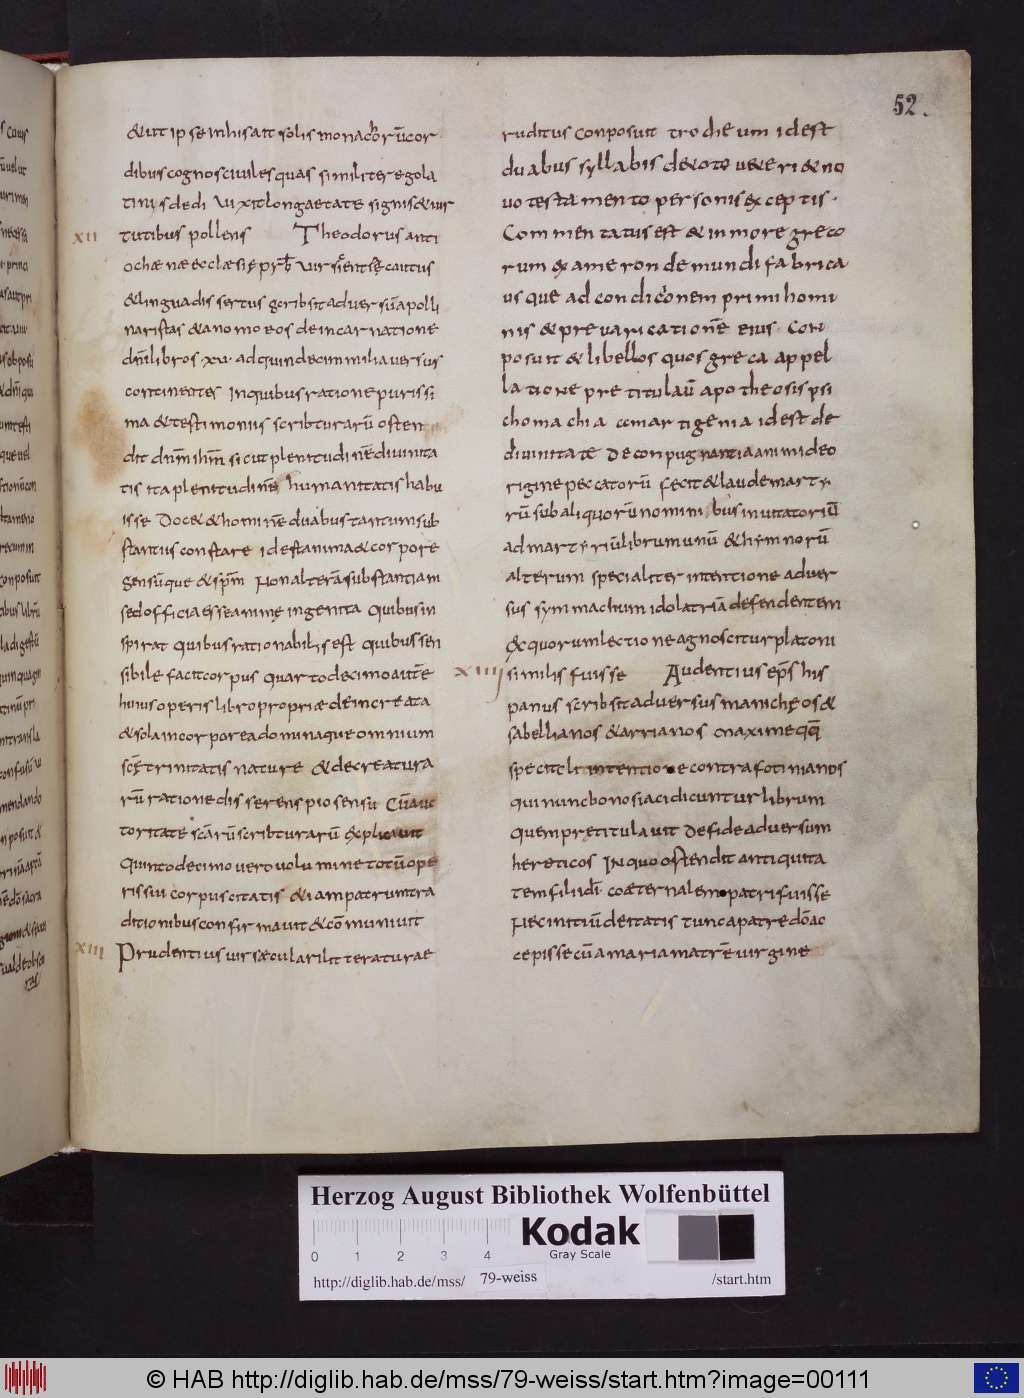 52.
& ut ipse inhisait solis monachorū cor
dibus cognosciuiles quas similiter egola
tinis dedi Uixit longa etate signis & uir
XII tutibus pollens Theodorus anti
ochænæ ecclæsię prb uir sientię cautus
& lingua dissertus scribsit aduersū apolli
naristas & anomoeos de incarnatione
dnī libros ·xv· ad quindecim milia uersus
continentes Inquibus ratione purissi
ma & testimoniis scribturarū osten
dit dnm ihm sicut plenitudinē diuinita
tis ita plenitudinē humanitatis habu
isse Doc& & hominē duabus tantum sub
stantiis constare id est anima & corpore
sensūque & spm Non alterā substantiam
sed officia esse animę ingenita Quibus in
spirat quibus rationabilis est quibus sen
sibile facit corpus quarto decimo autē
huius operis libro propriæ de increata
& sola incorporea dominaque omnium
scę trinitatis nature & de creatura
rū ratione disserens pio sensu Cū auc
toritate scārū scribturarū explicauit
Quinto decimo uero uolumine totū ope
ris sui corpus citatis & iam patrum tra
ditionibus confirmauit & cōmuniuit
XIII Prudentius uir sæcularilit teraturae
ruditus conposuit trocheum id est
duabus syllabis de toto uetere & no
uo testamento personis exceptis·
Commentatus est & in more greco
rum exameron de mundi fabrica
usque ad condicionem primi homi
nis & preuaricationē eius· Con
posuit & libellos quos greca appel
latione pretitulaū apotheosis psi
chomachia amartigenia id est de
diuinitate De conpugnantia animi deo
rigine peccatorū fecit & laude marty
rū sub aliquorū nominibus inuitatoriū
ad martyriū librum unū & hymnorū
alterum specialiter intentione aduer
sus symmachum idolatriā defendentem
ex quorum lectione agnoscitur platoni
XIIII similis fuisse Audentius eps his
panus scribsit aduersus manicheos &
sabellianos & arrianos maxime qq
speciteli intentione contra fotinianos
qui nunc bonosiaci dicuntur librum
quem pretitulauit De fide aduersum
hereticos In quo ostendit antiquita
tem filii di coæternalem patri fuisse
Nec initiū deitatis tunc a patre do ac
cepisse cū a maria matrē uirgine
Herzog August Bibliothek Wolfenbüttel
0 1 2 3 4
Kodak
Gray Scale
http://diglib.hab.de/mss/ 79-weiss /start.htm
© HAB http://diglib.hab.de/mss/79-weiss/start.htm?image=00111